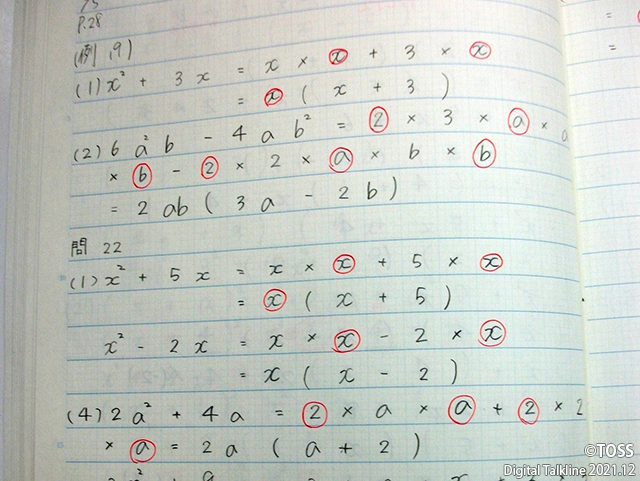 P.28
(例19)
(1) x² + 3x = x × x + 3 × x
= x ( x + 3 )
(2) 6a²b - 4ab² = 2 × 3 × a × a
× b - 2 × 2 × a × b × b
= 2ab ( 3a - 2b )
問 22
(1) x² + 5x = x × x + 5 × x
= x ( x + 5 )
x² - 2x = x × x - 2 × x
= x ( x - 2 )
(4) 2a² + 4a = 2 × a × a + 2 × 2
× a = 2a ( a + 2 )
©TOSS
Digital Talkline 2021.12